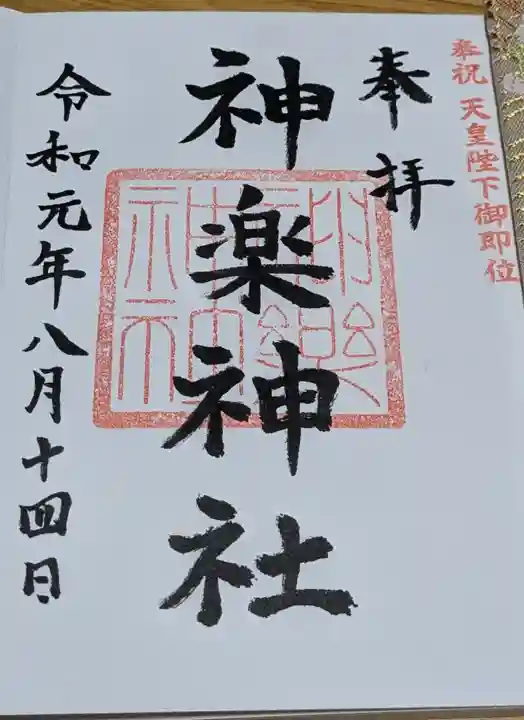 奉祝 天皇陛下御即位
奉拝
神楽神社
神楽神社
令和元年八月十四日